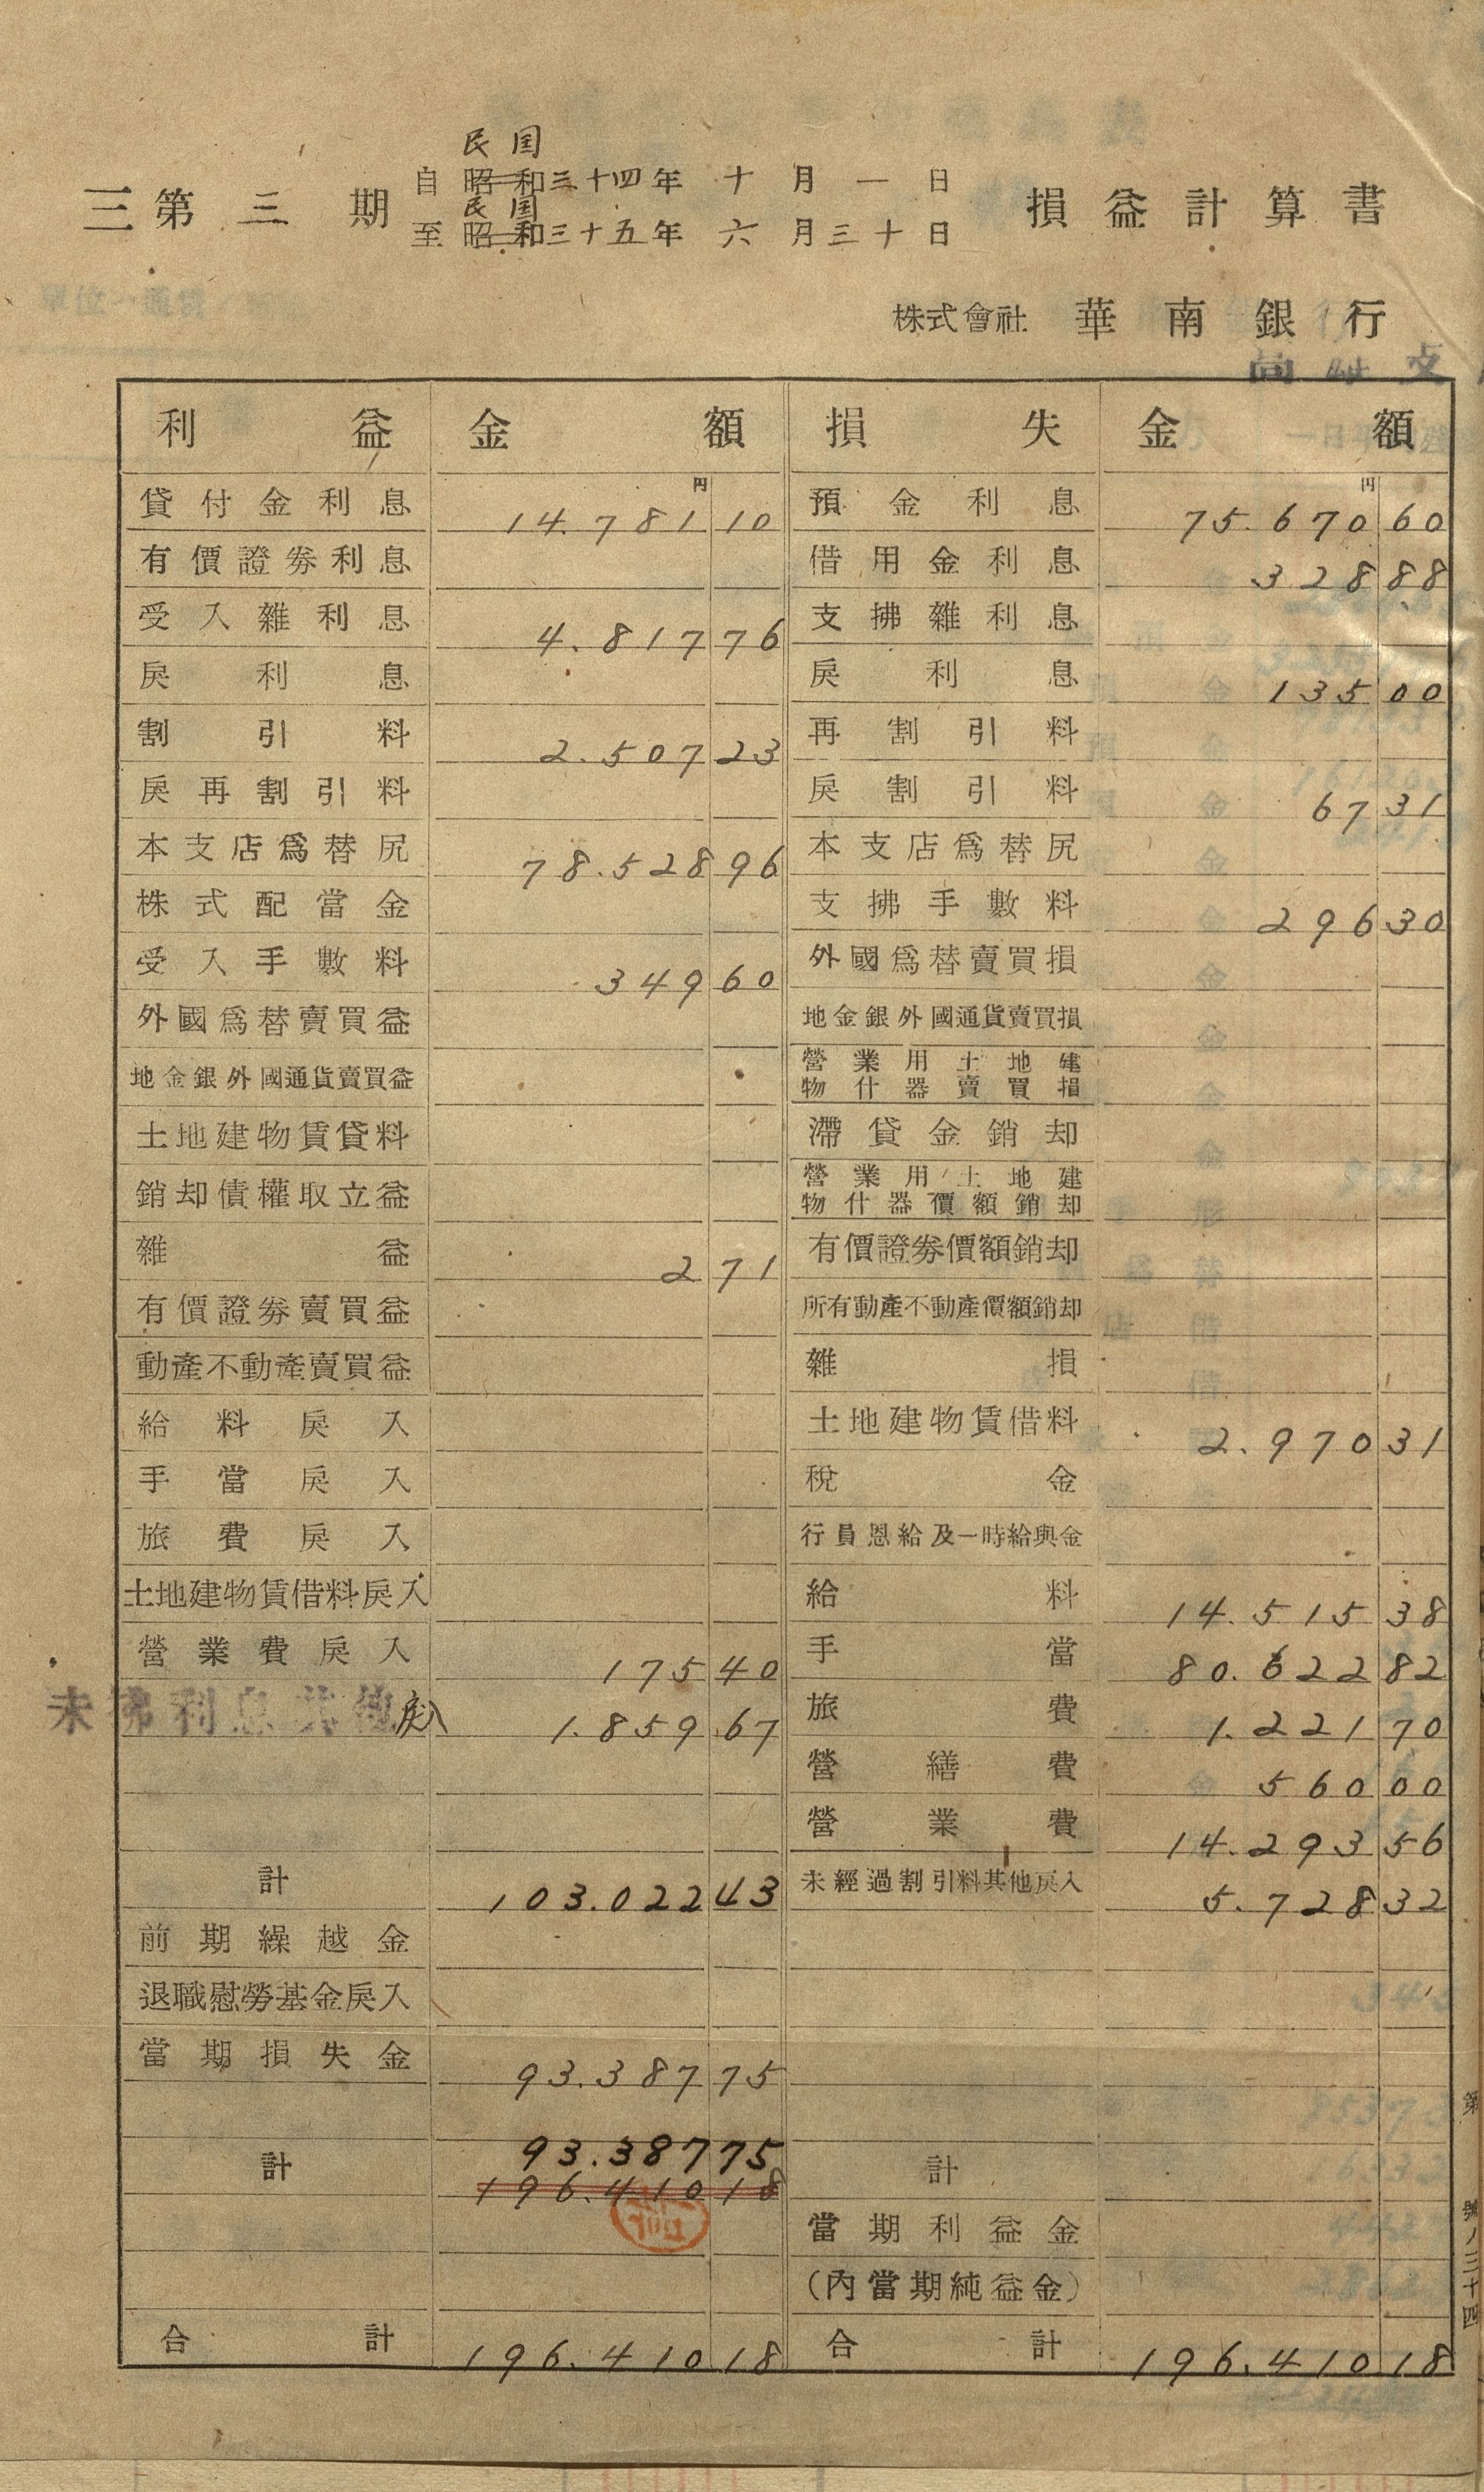 民国
自昭和三十四年十月一日
三第三期
民国
至昭和三十五年六月三十日
損益計算書
株式會社 華南銀行
利益 金額 損失 金額
貸付金利息 円 14.781 10 預金利息 円 75.670 60
有價證券利息 借用金利息 328 88
受入雜利息 4.817 76 支拂雜利息
戻利息 戻利息 135 00
割引料 2.507 23 再割引料
戻再割引料 戻割引料 67 31
本支店爲替尻 78.528 96 本支店爲替尻
株式配當金 支拂手數料 296 30
受入手數料 349 60 外國爲替賣買損
外國爲替賣買益 地金銀外國通貨賣買損
地金銀外國通貨賣買益 營業用土地建物什器賣買損
土地建物賃貸料 滯貸金銷却
銷却債權取立益 營業用土地建物什器價額銷却
雜益 2 71 有價證券價額銷却
有價證券賣買益 所有動產不動產價額銷却
動產不動產賣買益 雜損
給料戻入 土地建物賃借料 2.970 31
手當戻入 稅金
旅費戻入 行員恩給及一時給與金
土地建物賃借料戻入 給料 14.515 38
營業費戻入 175 40 手當 80.622 82
未拂利息其他戻入 1.859 67 旅費 1.221 70
營繕費 560 00
營業費 14.293 56
計 103.022 43 未經過割引料其他戻入 5.728 32
前期繰越金
退職慰勞基金戻入
當期損失金 93.387 75
93.387 75
計 196.410 18 計
當期利益金
(內當期純益金)
合計 196.410 18 合計 196.410 18
第
號ノ三十四